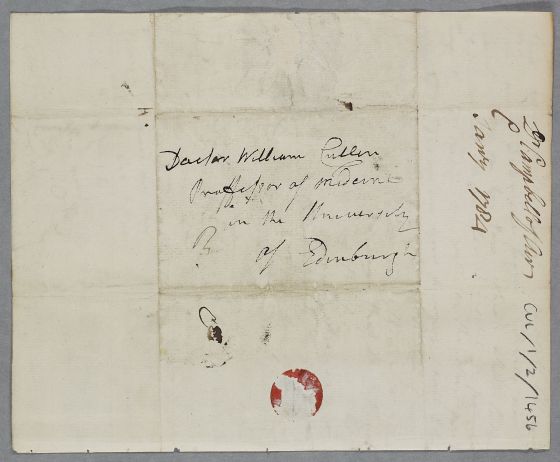 Doctor William Cullen
Proffessor of Medecine
in the University
of Edinburgh
Dr Campbell of Ayr
Janry 1784
CUL/1/2/1456